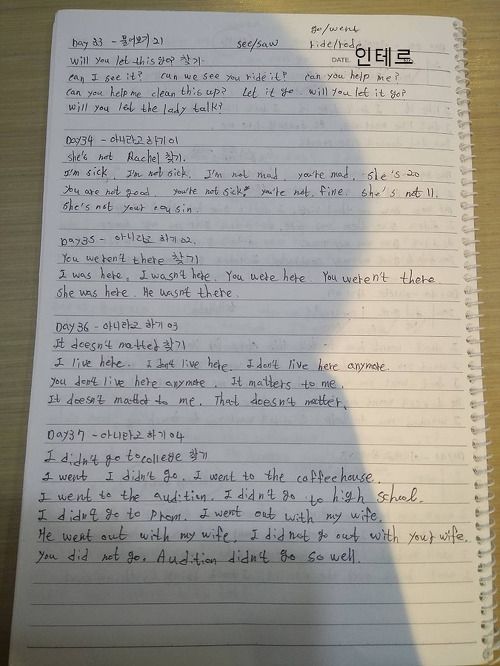 go/went
Day 33 - 물어보기 21 see/saw ride/rode
DATE. 인테르
will you let this go? 찾기.
can I see it? can we see you ride it? can you help me?
can you help me clean this up? Let it go will you let it go?
will you let the lady talk?
Day34 - 아니라고 하기 01
she's not Rachel 찾기.
I'm sick. I'm not sick. I'm not mad. you're mad. she's 20
You are not good. you're not sick. you're not fine. she's not 11.
she's not your cousin.
Day35 - 아니라고 하기 02.
You weren't there 찾기
I was here. I wasn't here. You were here. You weren't there
she was here. He wasn't there.
Day 36 - 아니라고 하기 03
It doesn't matter 찾기
I live here. I don't live here. I don't live here anymore.
you don't live here anymore. It matters to me.
It doesn't matter to me. That doesn't matter.
Day37 - 아니라고 하기 04
I didn't go to college 찾기
I went I didn't go. I went to the coffeehouse.
I went to the audition. I didn't go to high school.
I didn't go to prom. I went out with my wife.
He went out with my wife. I did not go out with your wife.
you did not go. Audition didn't go so well.